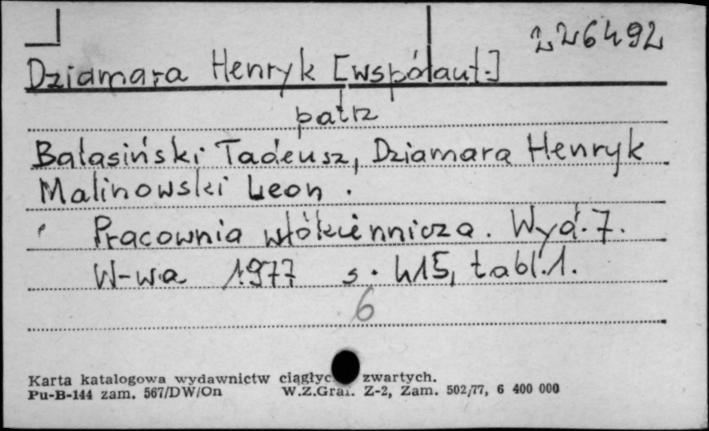 226492
Dziamara Henryk [współaut.]
patrz
Bałasiński Tadeusz, Dziamara Henryk
Malinowski Leon.
Pracownia włókiennicza. Wyd. 7.
W-wa 1977 s. 415, tabl. 1.
6
Karta katalogowa wydawnictw ciągłyc zwartych.
Pu-B-144 zam. 567/DW/On W.Z.Graf. Z-2, Zam. 502/77, 6 400 000